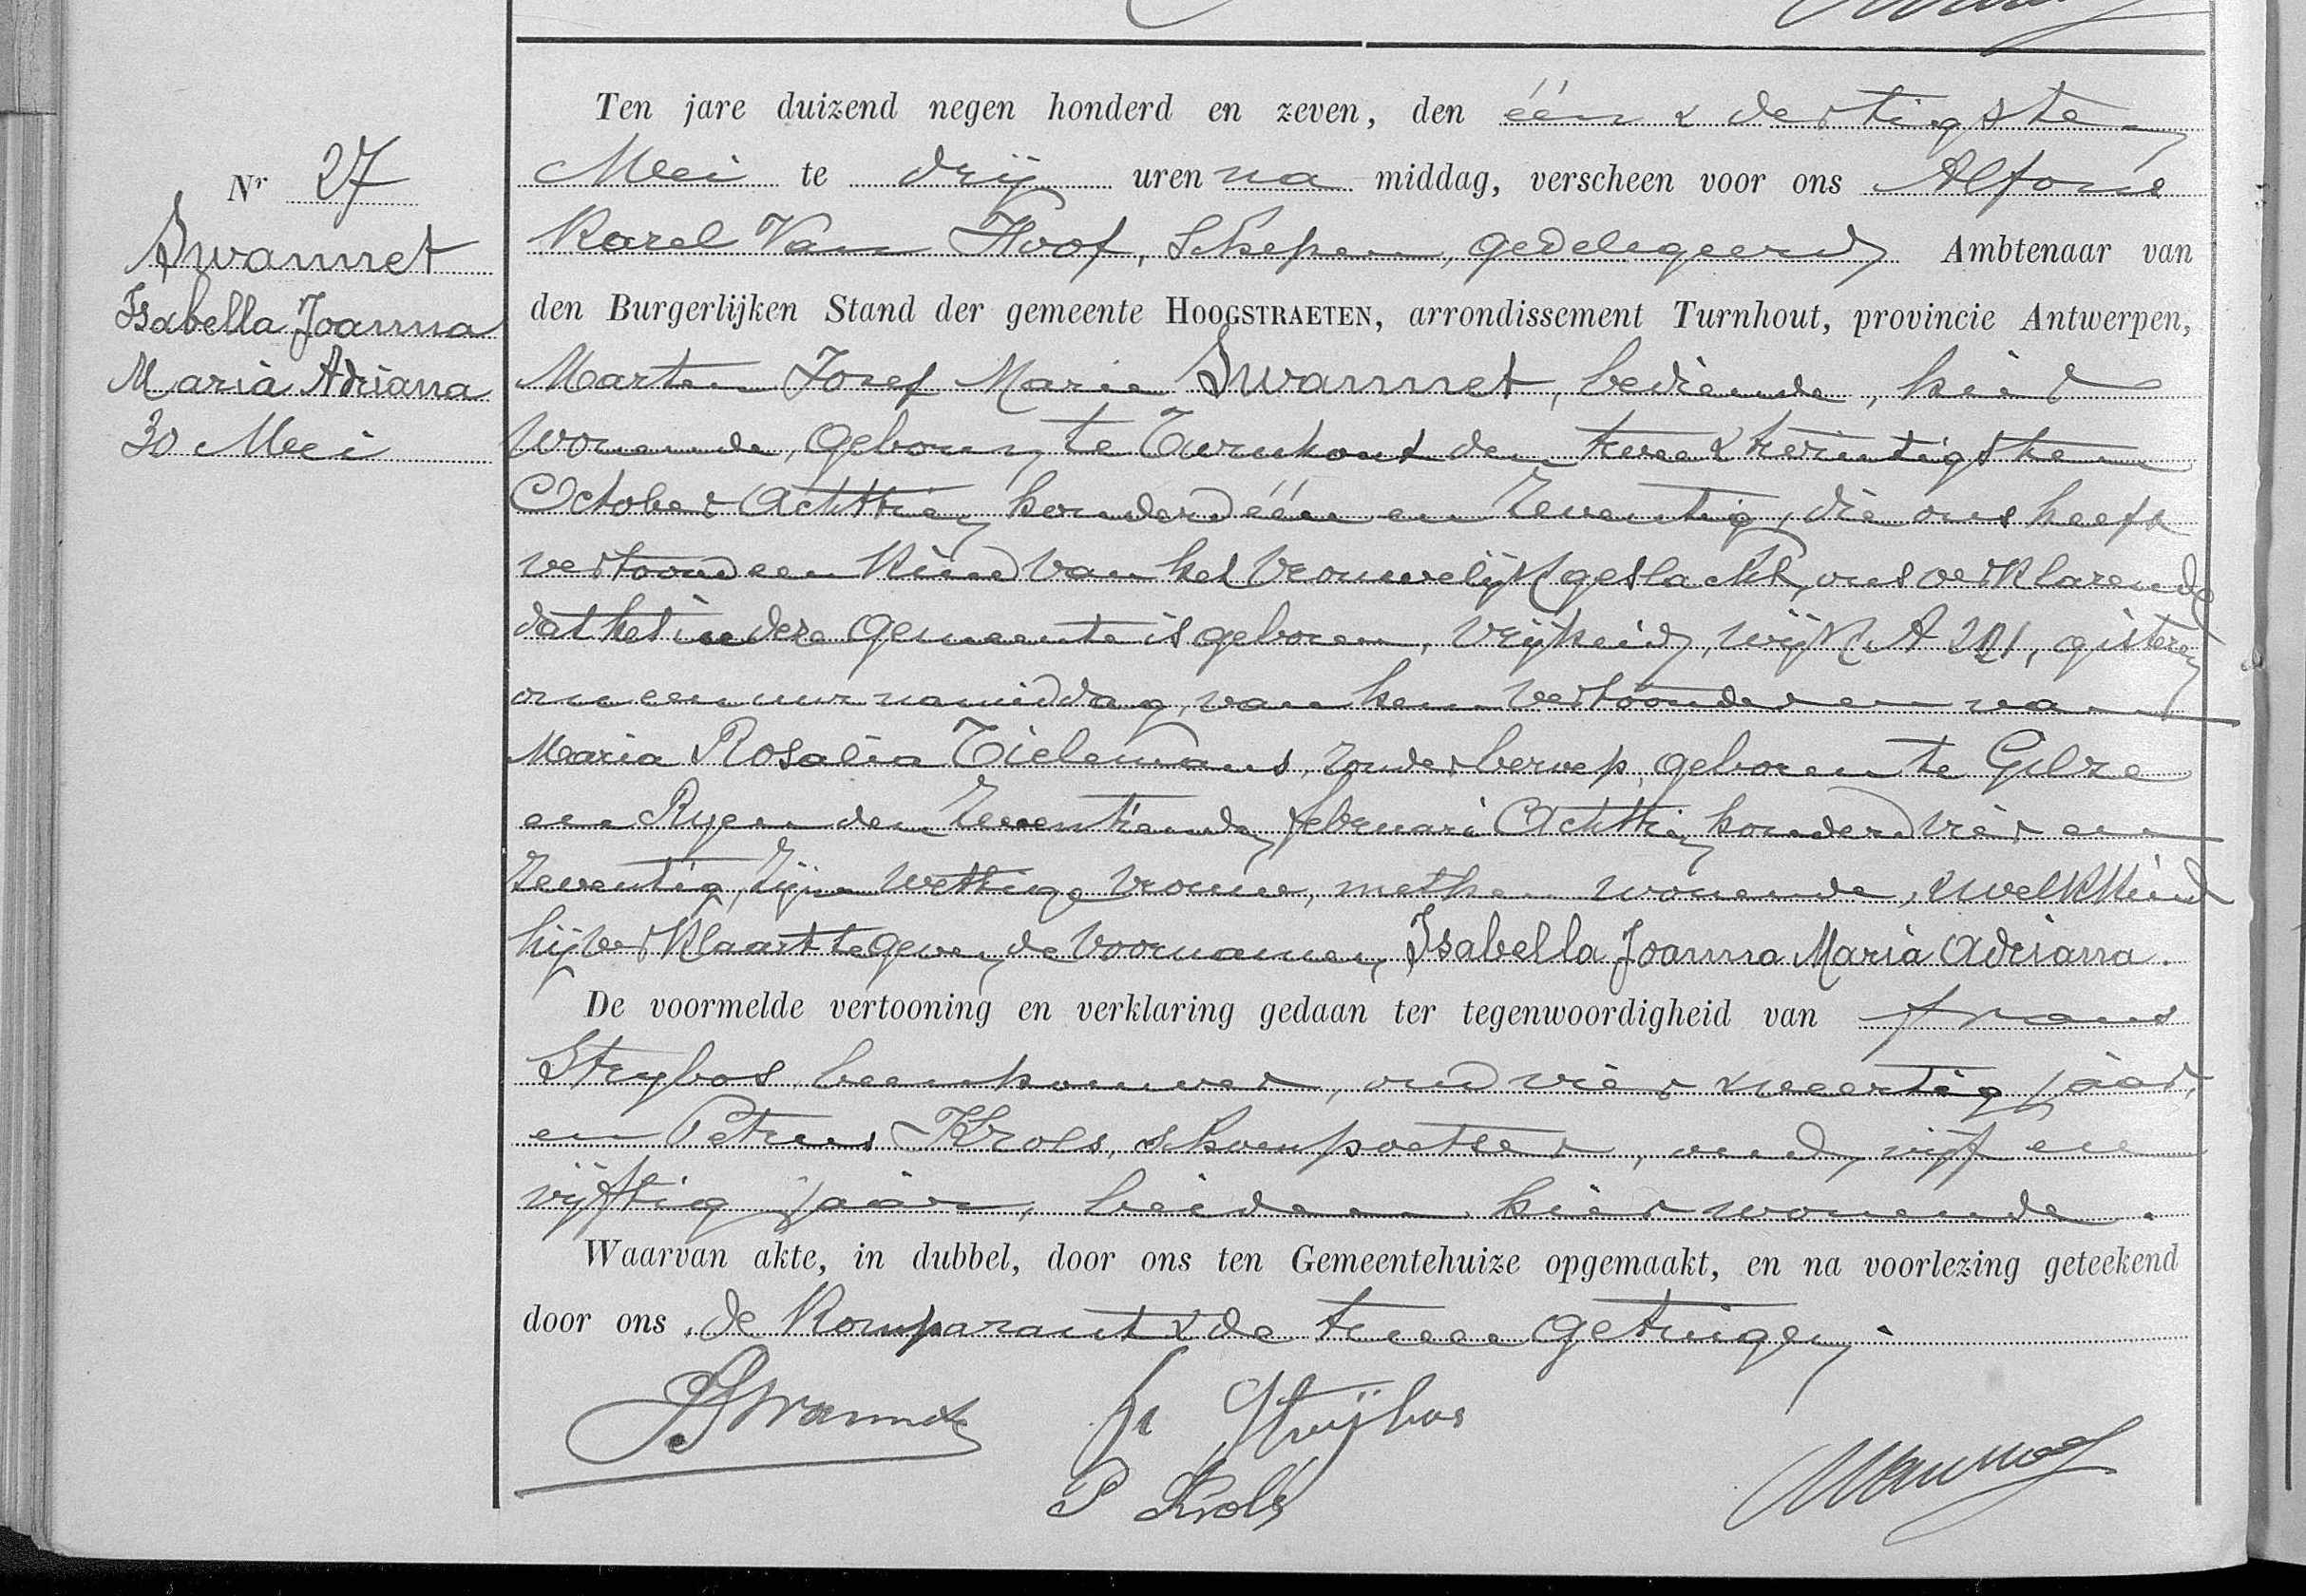 Nr 27
Swannet
Isabella Joanna
Maria Adriana
30 Mei
Ten jare duizend negen honderd en zeven, den één & dertigsten
Mei te drij uren na middag, verscheen voor ons Alfons
Karel Van Hoof, Schepen, gedelegeerd Ambtenaar van
den Burgerlijken Stand der gemeente HOOGSTRAETEN, arrondissement Turnhout, provincie Antwerpen,
Marten Josef Maria Swannet, bediende, hier
wonende, geboren te Turnhout den twee & twintigsten
October Achttien honderd één en zeventig, die ons heeft
vertoond een kind van het vrouwelijk geslacht, ons verklarende
dat het in deze gemeente is geboren, Vrijheid, wijk A 201, gisteren
om een uur namiddag, van hem vertoonder en van
Maria Rosalia Tielemans, zonder beroep, geboren te Gilze
en Ryen den zeventienden februari Achttien honderd vier en
zeventig, zijne wettige vrouw, met hem wonende, & welk kind
hij verklaart te geven de voornamen, Isabella Joanna Maria Adriana.
De voormelde vertooning en verklaring gedaan ter tegenwoordigheid van frans
Strybos, beenhouwer, oud vier & veertig jaar,
en Petrus Krols, schoenpoetser, oud vijf en
vijftig jaar, beiden hier wonende.
Waarvan akte, in dubbel, door ons ten Gemeentehuize opgemaakt, en na voorlezing geteekend
door ons, de Komparant & de twee getuigen.
Swannet
fr Strijbos
P Krols